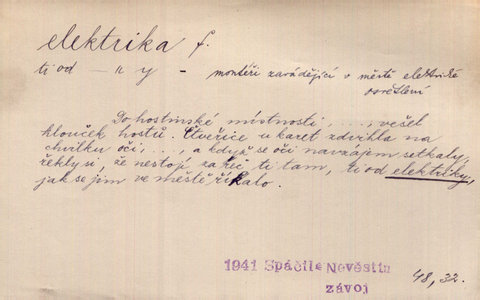 elektrika f.
ti od — ky - montéři zavádějící v městě elektrické
osvětlení
Do hostinské místnosti, ..., vešel
klouček hostů. Čtveřice u karet zdvihla na
chvilku oči, ..., a když se oči navzájem setkaly,
řekly si, že nestojí za řeč, ti tam, ti od elektriky,
jak se jim ve městě říkalo.
1941 Spáčil: Nevěstin
závoj
48, 32.